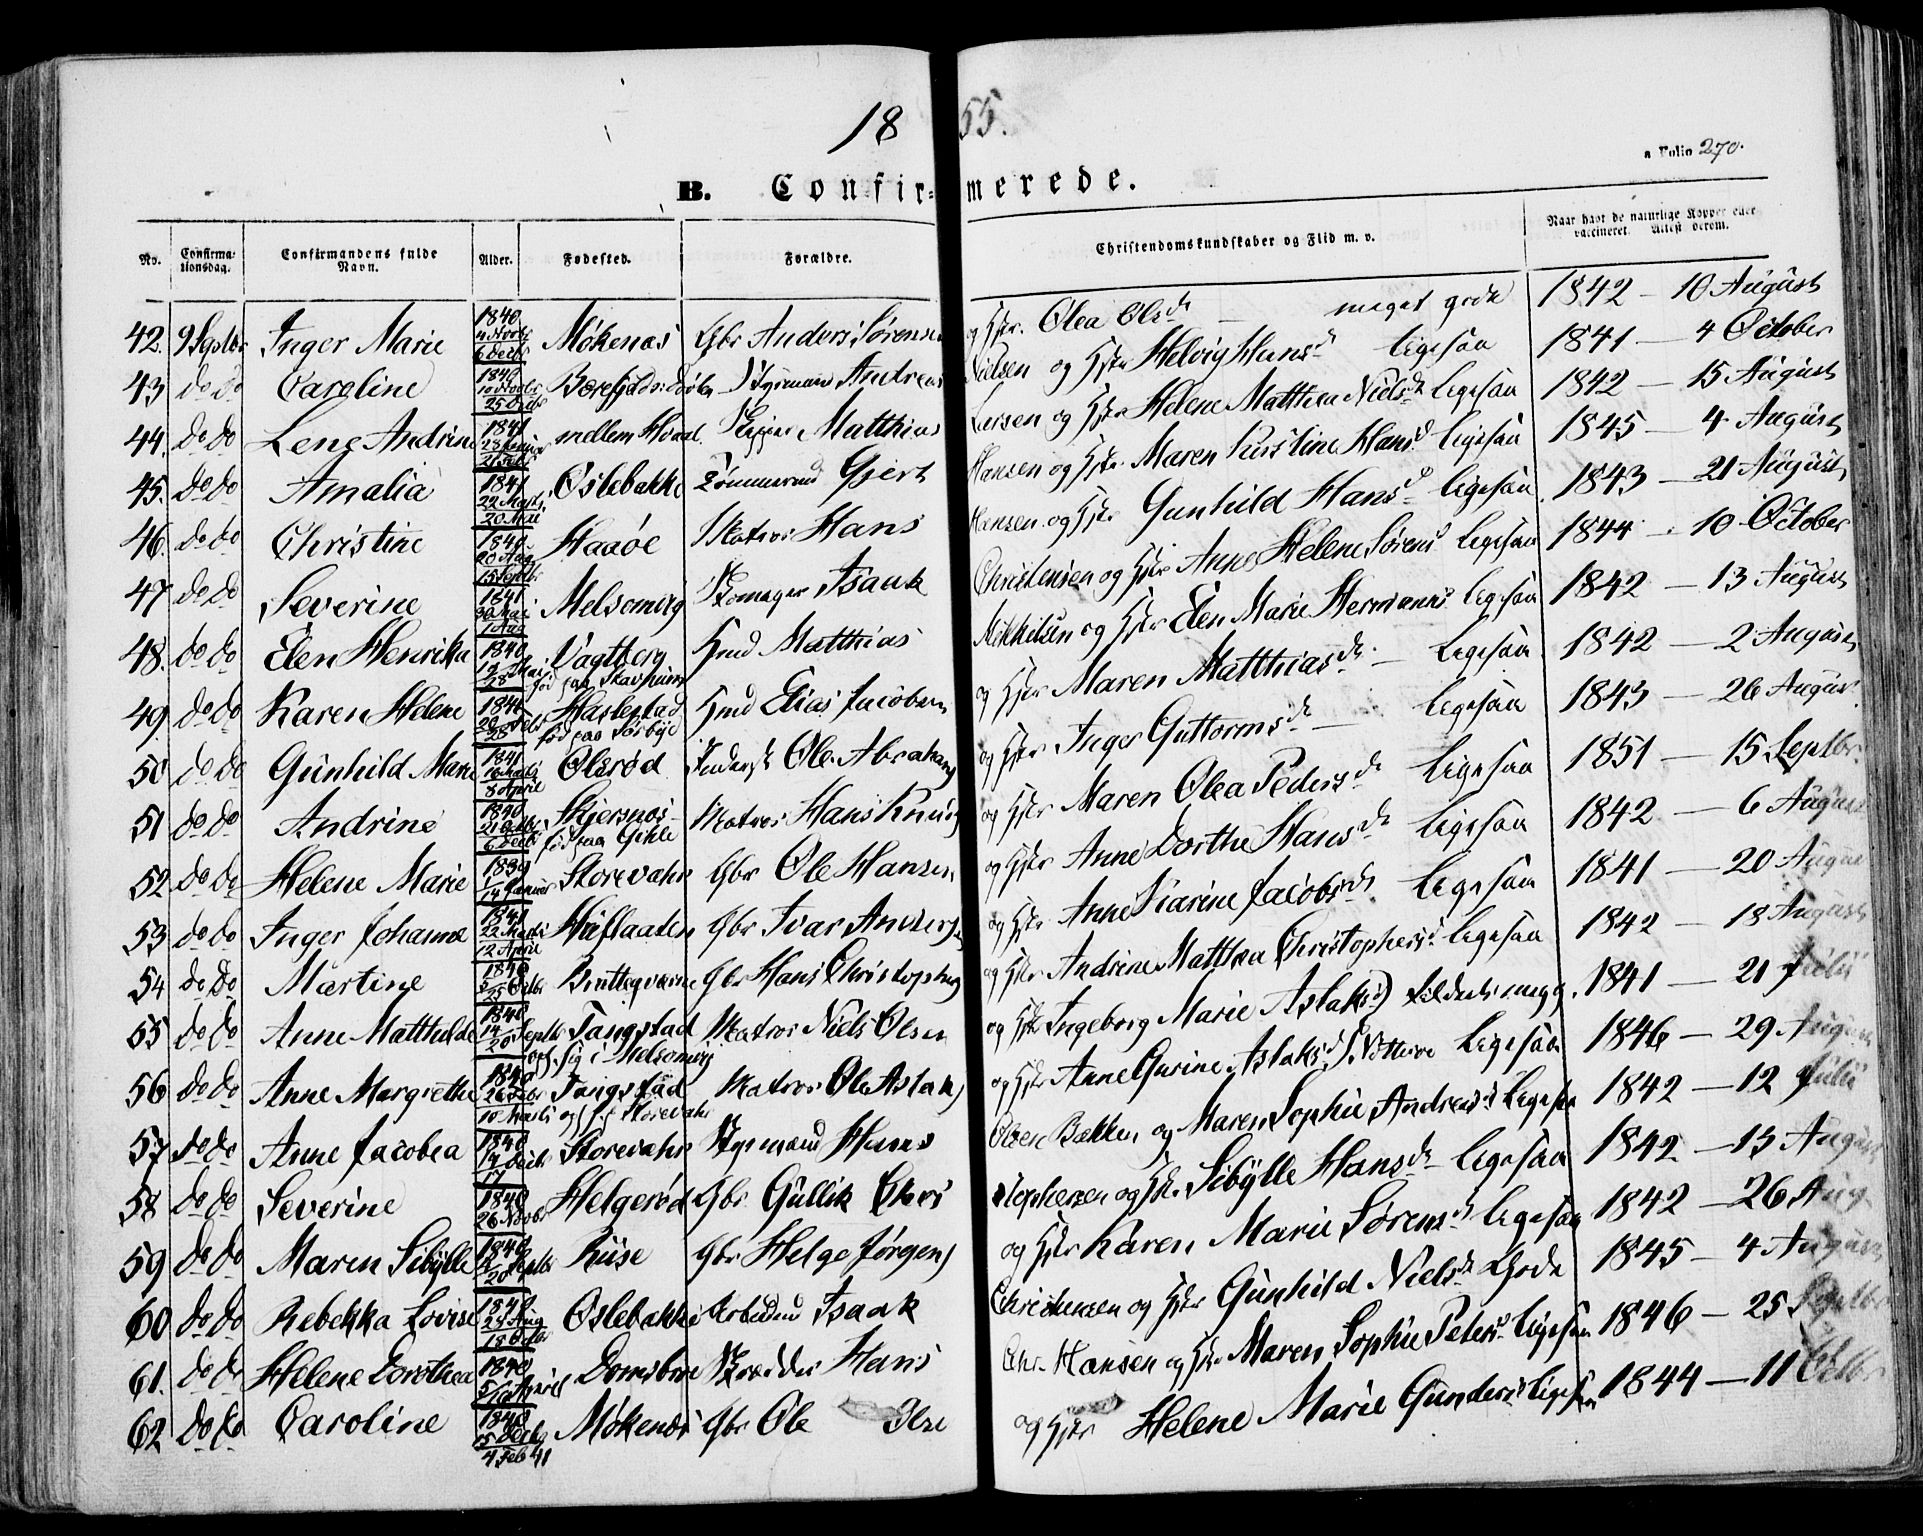 18 55.
a Folio 270.
B. Confir= merede.
No. Confirma- tionsdag. Confirmandens fulde Navn. Alder. Fødested. Forældre. Christendomskundskaber og Flid m. v. Naar havt de naturlige Kopper eller vaccineret. Attest derom.
42. 9 Septbr Inger Marie 1840 4 Novbr 6 Decbr Møkenæs Gbr Anders Sørensen og Hstr. Olea Olsd meget gode 1842 — 10 August
43 do do Caroline 1840 10 Novbr 25 Styrmand Andreas Nielsen og Hstr Helvig Hansd ligesaa 1841 — 4 October
44. do do Lene Andrine 1841 28 Januar 21 Febr mellem Skipper Matthias Larsen og Hstr Helene Matthea Nielsd ligesaa 1842 — 15 August
45. do do Amalia 1841 22 Marts 20 Mai Oslebakke Tømmermd Gjert Hansen og Hstr Maren Kirstine Hansd ligesaa 1845 — 4 August
46. do do Christine 1840 20 Aug 15 Septbr Haaøe Matros Hans Hansen og Hstr Gunhild Hansd ligesaa 1843 — 21 August
47 do do Severine 1841 30 Mai 1 Aug Melsomvig Skomager Isaak Christensen og Hstr Anne Helene Sørensd ligesaa 1844 — 10 October
48. do do Elen Henrika 1840 12 Mai 28 Vagtberg Hmd Matthias Mikkelsen og Hstr Elen Marie Hermansd ligesaa 1842 — 13 August
født paa
49 do do Karen Helene 28 Haslestad Hmd Elias Jacobsen og Hstr Maren Matthiasd. ligesaa 1842 — 2 August
født paa Sørbÿe
50 do do Gunhild Marie 1841 16 Marts 8 April Olsrød Ole Abrahams og Hstr Inger Guttormsd — ligesaa 1843 — 26 August
51 do do Andrine 1840 6 Decbr Skjersnæs Matros Hans Knuds og Hstr Maren Olea Pedersd ligesaa 1851 — 15 Septbr.
født paa Gihle
52 do do Helene Marie 1839 14 Januar Storevahr Gbr Ole Hansen og Hstr Anne Dorthe Hansd ligesaa 1842 — 6 August
53 do do Inger Johanne 1841 22 Marts 12 April Gbr Ivar Anders og Hstr Anne Karine Jacobsd ligesaa 1841 — 20 August
54 do do Martine 1840 25 Gbr Hans Christophers og Hstr Andrine Matthea Christophersd ligesaa 1842 — 18 August
55 do do Anne Matthilde 1840 14 20 Septbr Tangstad Matros Niels Olsen og Hstr Ingeborg Marie Aslaksd 1841 — 21 Julii
opf. sig i Melsomvig
56 do do Anne Margrethe 1840 26 Febr 10 Marts Tangstad Matros Ole Aslaks og Hstr Anne Gurine Aslaksd ligesaa 1846 — 29 August
Storevahr
57 do do Anne Jacobea 1840 17 Decbr Storevahr Styrmand Hans Olsen Bakken og Maren Sophie Andreasd ligesaa 1842 — 12 Julii
58 do do Severine 1840 26 Novbr Helgerød Gbr Gullik Chri stophersen og Hstr Sibÿlle Hansd ligesaa 1842 — 13 August
59 do do Maren Sibÿlle 1840 20 Septbr Riise Gbr Helge Jørgens og Hstr Karen Marie Sørensd ligesaa 1842 — 26 Aug
60 do do Rebekka Lovise 1840 24 Aug 18 Oslebakke Isaak Christensen og Hstr Gunhild Nielsd Gode 1845 — 4 August
61. do do Helene Dorothea 1840 April Skrædder Hans Chr. Hansen og Hstr Maren Sophie Petersd ligesaa 1846 — 25 Septbr
62 do do Caroline 1840 15 Decbr 4 Feb 41 Møkenæs Gbr Ole Olse og Hstr Helene Marie Gundersd ligesaa 1844 — 11 Octbr